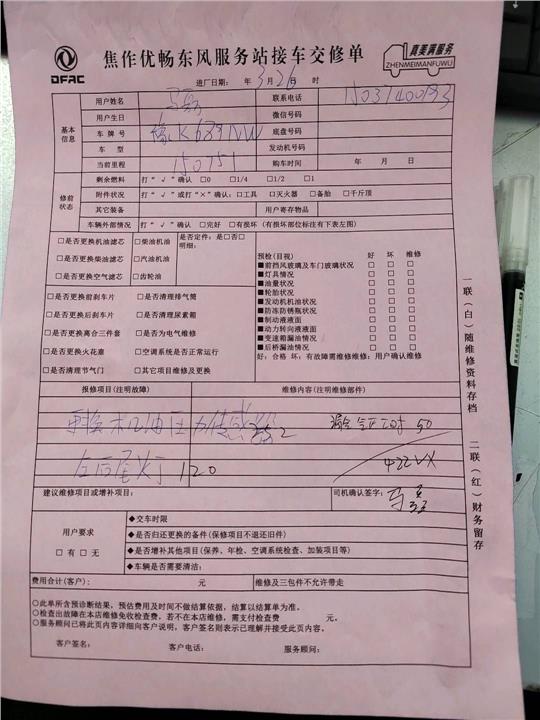 DFAC
焦作优畅东风服务站接车交修单
真美满服务
ZHENMEIMANFUWU
进厂日期: 年 3月26 时
基本信息
用户姓名 联系电话
用户生日 微信号码
车牌号 豫K689NW 底盘号码
车型 发动机号码
当前里程 150751 购车时间 年 月 日
修前状态
剩余燃料 打“√”确认 □0 □1/4 □1/2 □1
附件状况 打“√”或打“×”确认:□工具 □灭火器 □备胎 □千斤顶
其它装备 用户寄存物品
车辆外部情况 打“√”确认 □完好 □有损坏(有损坏部位标注有下表左图)
□是否更换机油滤芯 □柴油机油 是否定件:是□否□
明细:
□是否更换柴油滤芯 □汽油机油
□是否更换空气滤芯 □齿轮油
□是否更换前刹车片 □是否清理排气筒
□是否更换后刹车片 □是否清理尿素箱
□是否更换离合三件套 □是否为电气维修
□是否更换火花塞 □空调系统是否正常运行
□是否清理节气门 □其它项目维修及更换
预检(目视) 好 坏 维修
■前挡风玻璃及车门玻璃状况 □ □ □
■灯具情况 □ □ □
■油量状况 □ □ □
■轮胎状况 □ □ □
■发动机机油状况 □ □ □
■防冻防锈瓶状况 □ □ □
■制动液液面 □ □ □
■动力转向液液面 □ □ □
■变速箱漏油情况 □ □ □
■后桥漏油情况 □ □ □
好:合格 坏:有故障需维修维修:用户确认维修
报修项目(注明故障) 维修内容(注明维修部件)
更换机油压力传感器 50
左后尾灯 120
建议维修项目或增补项目: 司机确认签字:
用户要求
□有□无
◆交车时限
◆是否归还更换的备件(保修项目不退还旧件)
◆是否增补其他项目(保养、年检、空调系统检查、加装项目等)
◆车辆是否需要清洁:
费用合计(客户): 元 维修及三包件不允许带走
○此单所含预诊断结果,预估费用及时间不做结算依据,结算以结算单为准。
○检查出故障在本店维修免收检查费,若不在本店维修,需支付检查费 元。
○服务顾问已将此页内容详细向客户说明,客户签名则表示已理解并接受此页内容。
客户签名: 客户电话: 服务顾问:
一联(白)随维修资料存档
二联(红)财务留存